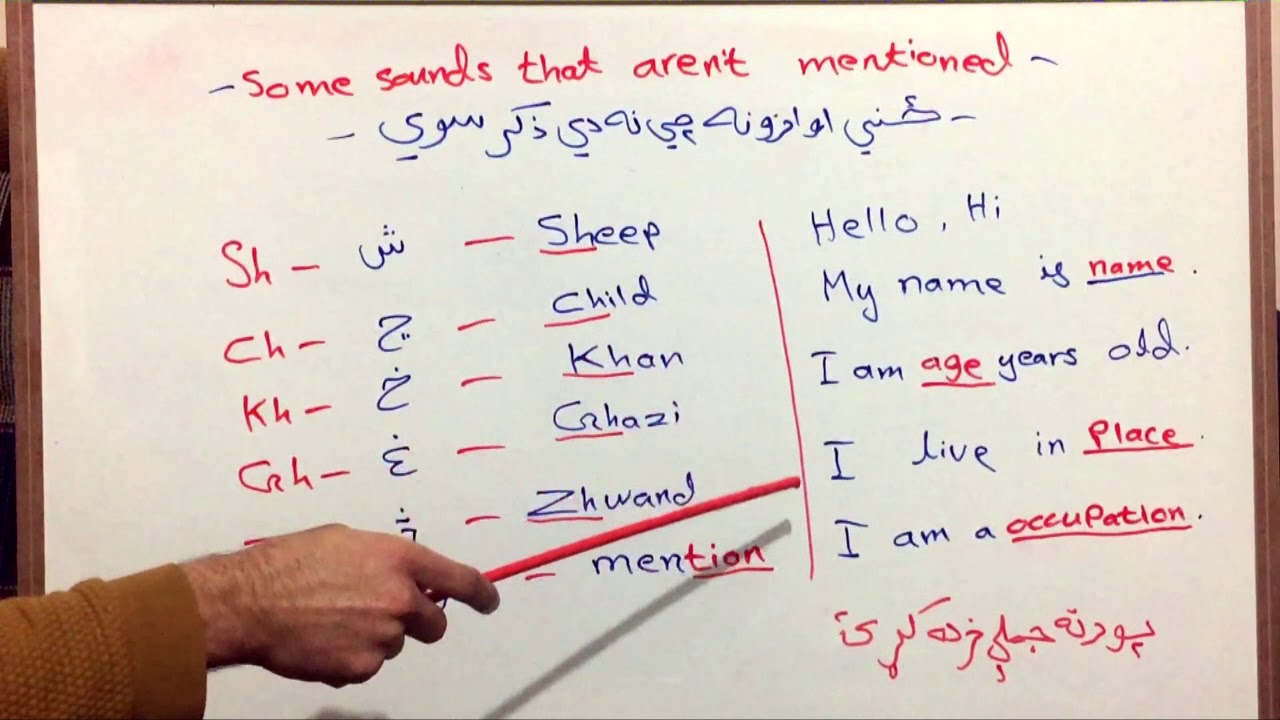 - Some sounds that aren't mentioned -
- ځني اوازونه چي نه دي ذکر سوي -
Sh - ش - Sheep
Ch - چ - Child
Kh - خ - Khan
Gh - غ - Ghazi
- Zhwand
- mention
Hello, Hi
My name is name.
I am age years old.
I live in Place.
I am a occupation.